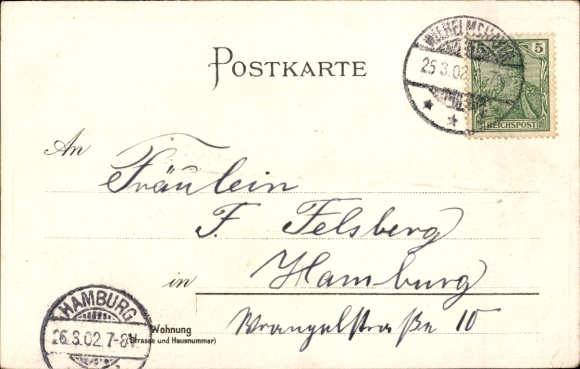 POSTKARTE
WILHELMSHAVEN
25.3.02.
5 5
REICHSPOST
An Fräulein
F. Felsberg
in Hamburg
Wohnung
(Strasse und Hausnummer)
Wrangelstraße 10
HAMBURG
26.3.02. 7-8V.